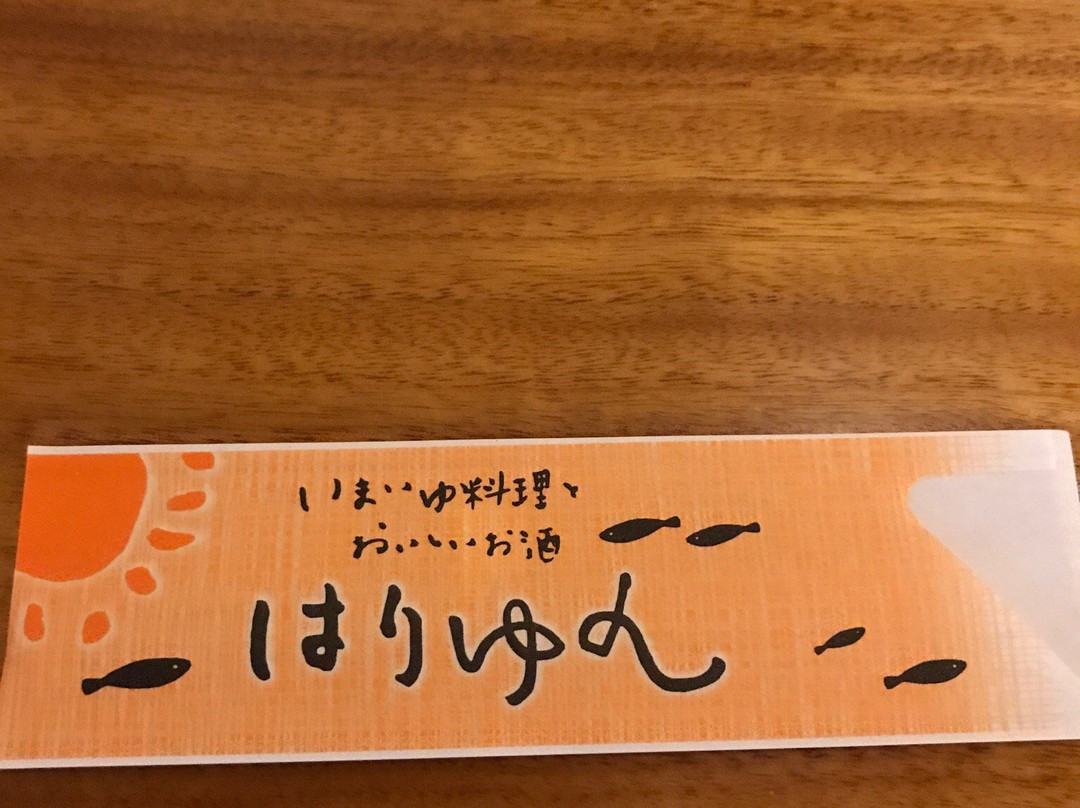 いまいゆ料理と
おいしいお酒
はりゆん